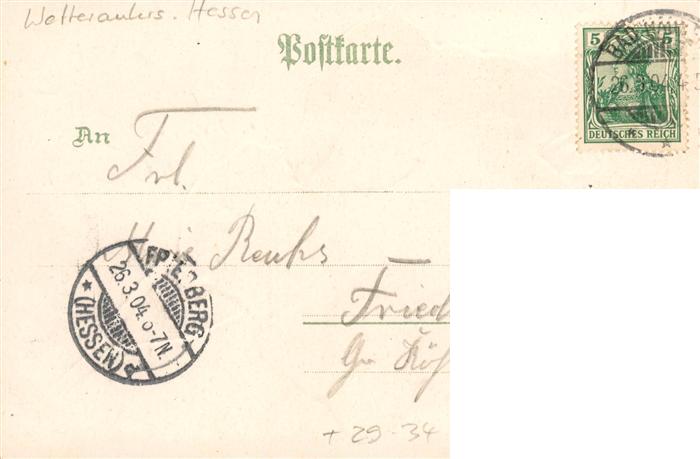 Wetteraukrs. Hessen
Postkarte.
5 5
BAD
26.3.04.4
DEUTSCHES REICH
An
Frl.
Reuhs
FRIEDBERG
26.3.04.6-7N.
(HESSEN)
Fried
Gr.
+ 29-34